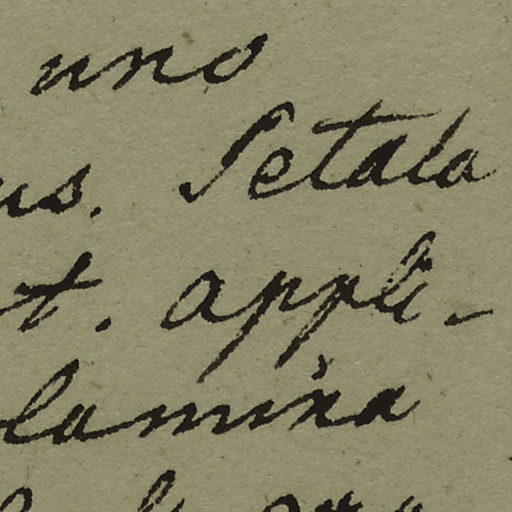 uno
us. Petala
t. appli-
lamina